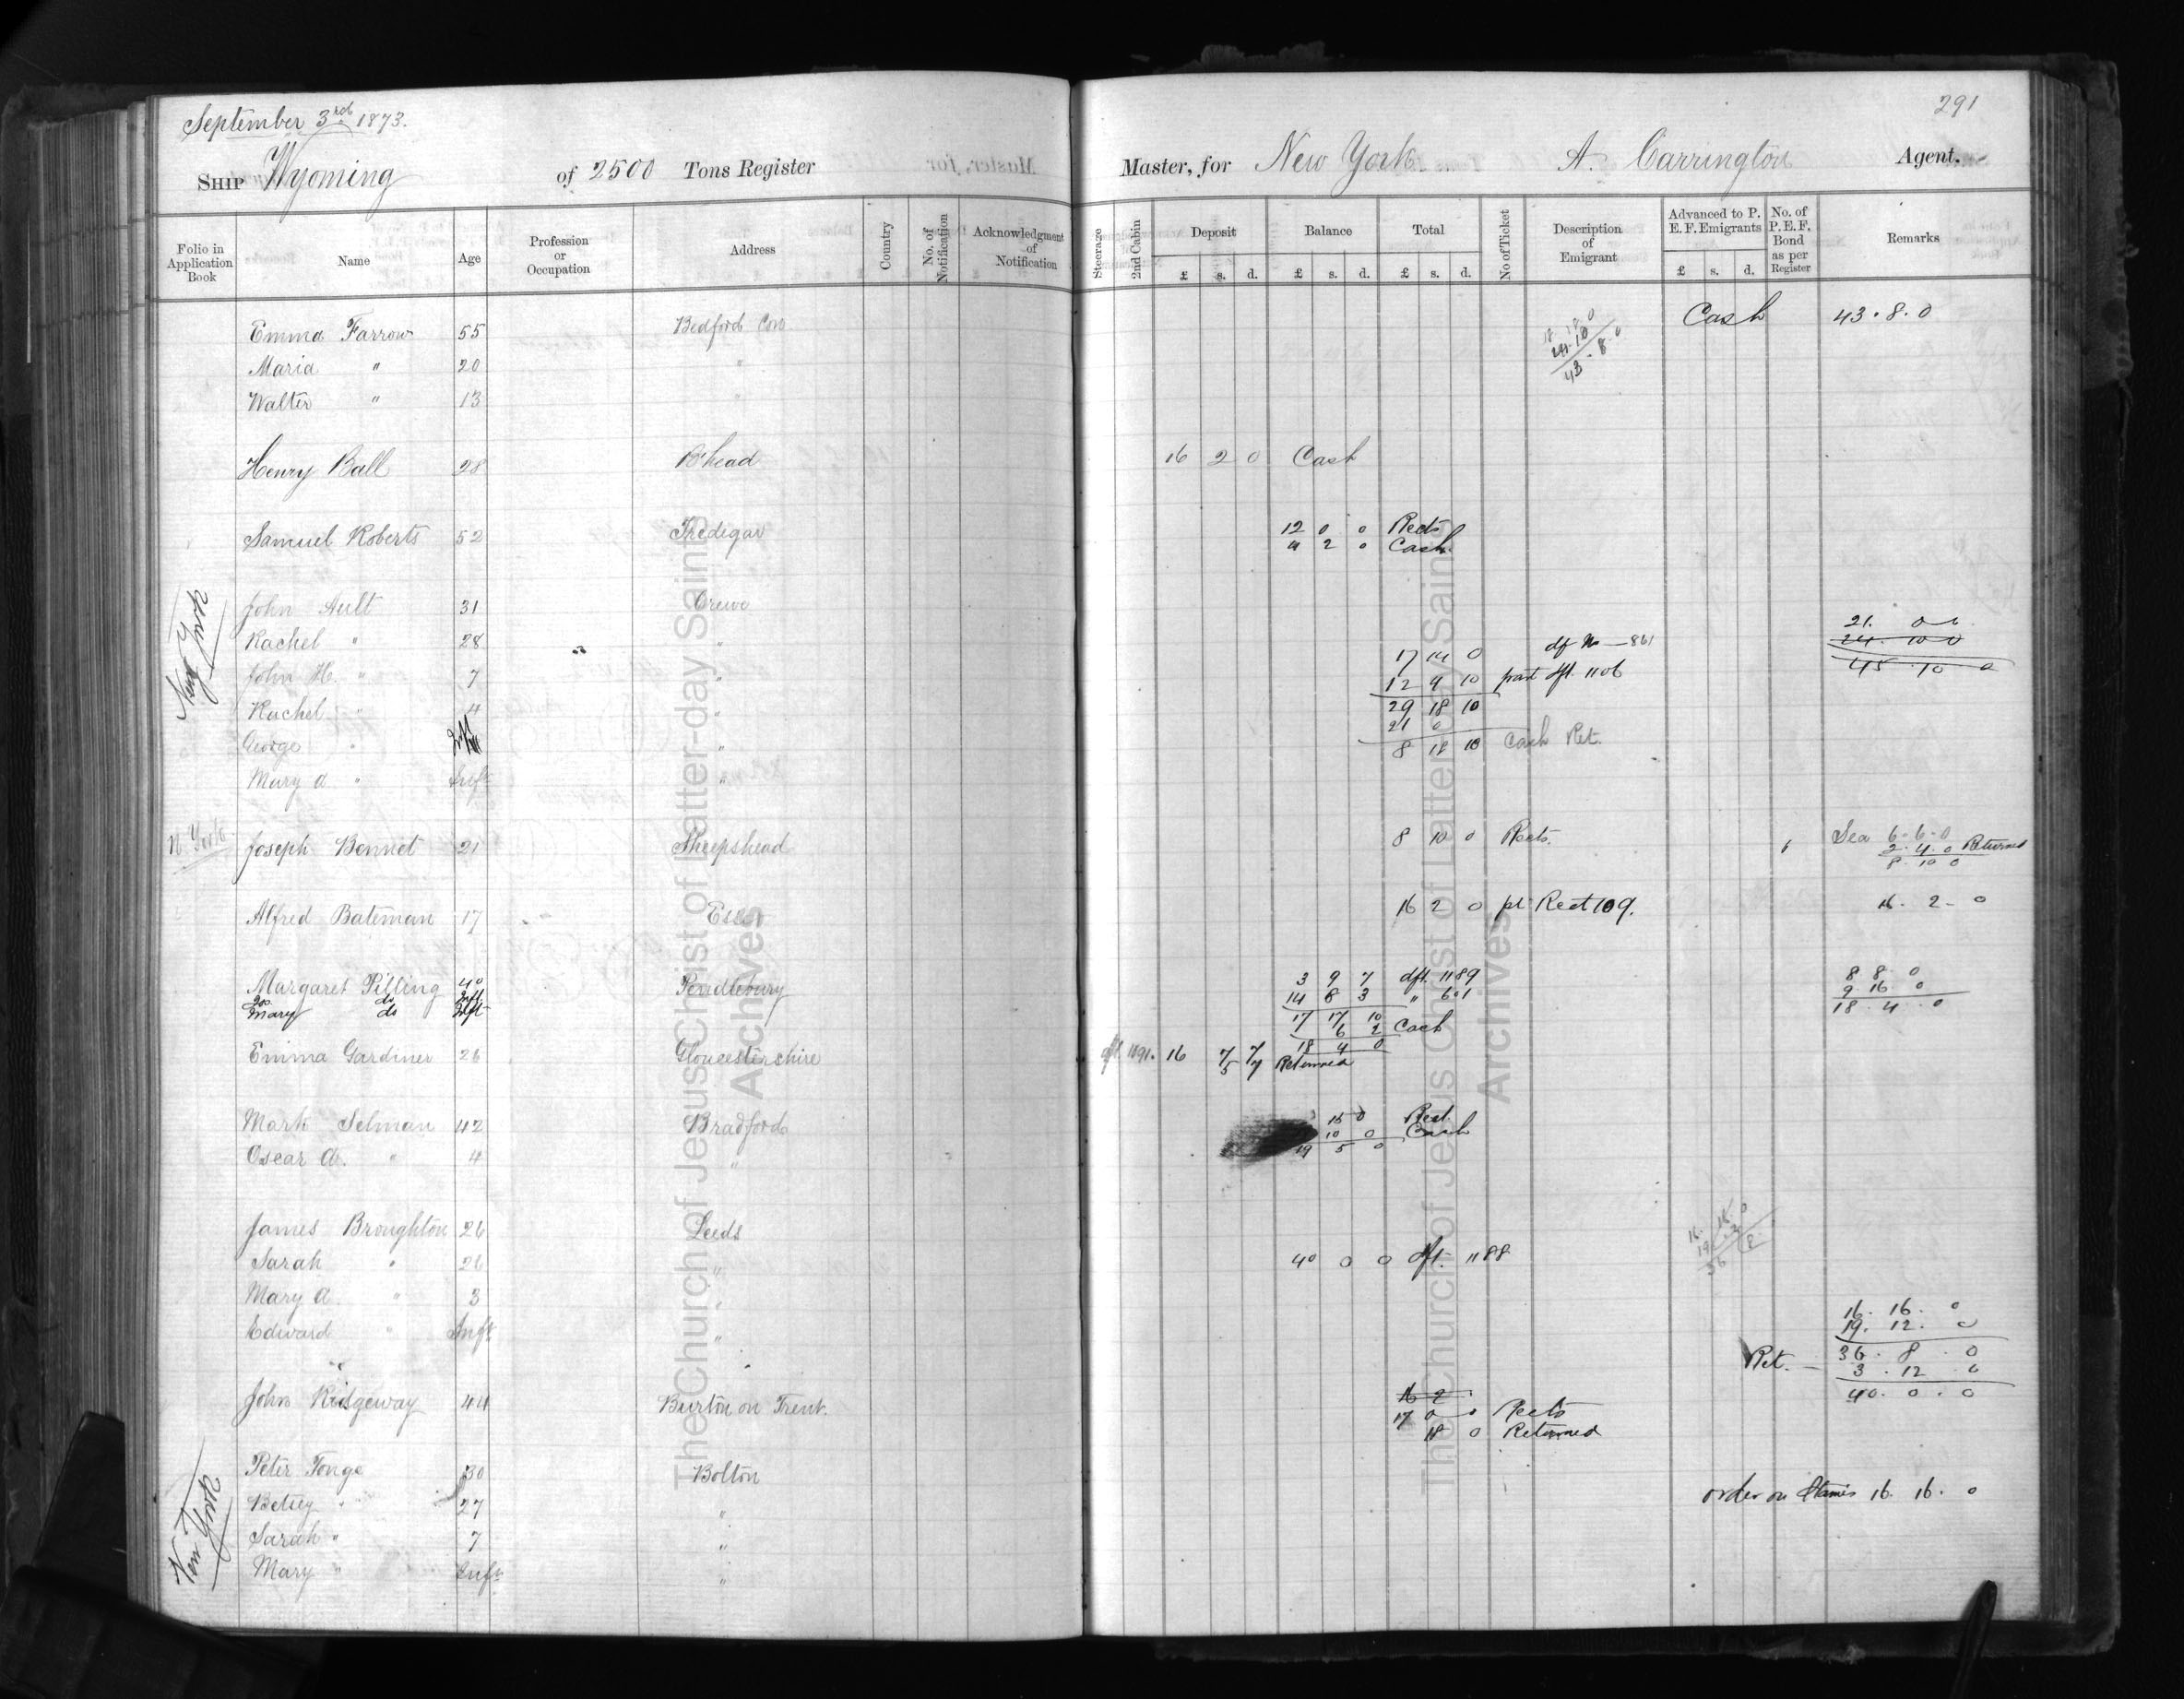 September 3rd 1873.
291
SHIP Wyoming of 2500 Tons Register Master, for New York A. Carrington Agent.
Folio in Application Book Name Age Profession or Occupation Address Country No. of Notification Acknowledgment of Notification Steerage 2nd Cabin Deposit Balance Total No of Ticket Description of Emigrant Advanced to P. E. F. Emigrants No. of P. E. F. Bond as per Register Remarks
£ s. d. £ s. d. £ s. d. £ s. d.
Emma Farrow 55 Bedford Con Cash 43 . 8 . 0
43 . 8 . 0
Maria " 20 "
Walter " 13 "
Henry Ball 28 B'head 16 2 0 Cash
Samuel Roberts 52 Tredegar 12 0 0 Rects
4 2 0 Cash
New York
John Ault 31 Crewe 21. 0 0
Rachel " 28 " 17 14 0 dft No — 861 24 10 0
John H. " 7 " 12 4 10 part dft. 1106 45 . 10 0
Rachel " 4 " 29 18 10
21 0
George " Inft " 8 18 10 Cash Ret.
Mary A " Inft "
N. York
Joseph Bennet 21 Sheepshead 8 10 0 Rects. Sea 6 . 6 . 0
2 . 4 . 0 Returned
8 . 10 0
Alfred Bateman 17 Essex 16 2 0 pt Rect 109. 16 . 2 - 0
Margaret Pilling 40 Pendlebury 3 9 7 dft. 1189 8 8 . 0
do Inft 14 8 3 " 601 9 16 . 0
Mary do Inft 17 17 10 18 . 4 . 0
6 2 Cash
18 4 0
Emma Gardiner 26 Gloucestershire dft 1191. 16 7 7
5 7 Returned
Mark Selman 42 Bradford 15 0 Rect.
10 0 Cash
Oscar A. " 4 " 19 5 0
James Broughton 26 Leeds
Sarah " 26 " 40 0 0 dft. 1188
Mary A " 3 " 16 . 16 . 0
Edward " Inft " 19 . 12 . 0
36 . 8 . 0
Ret. — 3 . 12 0
40 . 0 . 0
John Ridgeway 44 Burton on Trent. 16 2
17 0 0 Rects
18 0 Returned
New York
Peter Tonge 30 Bolton
Betsey " 27 " order on Stamis 16 . 16 . 0
Sarah " 7 "
Mary " Inft "
The Church of Jesus Christ of Latter-day Saints
Archives
The Church of Jesus Christ of Latter-day Saints
Archives